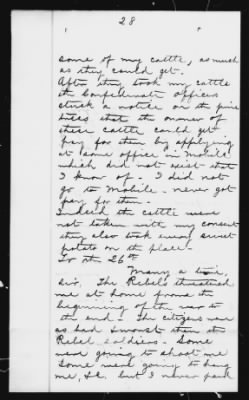 28
some of my cattle, as much
as they could get.
After they took my cattle
the Confederate officers
stuck a notice on the pine
trees that the owner of
these cattle could get
pay for them by applying
at some office in Mobile
which did not exist that
I know of. I did not
go to Mobile - never got
pay for them.
Indeed the cattle were
not taken with my consent
they also took away sweet
potato on the place.
To the 26th
Many a time,
sir. The Rebels threatened
me at home from the
beginning of the war to
the end. The citizens were
as bad amongst them as
Rebel soldiers. Some
were going to shoot me
Some were going to hang
me, &c. but I never paid